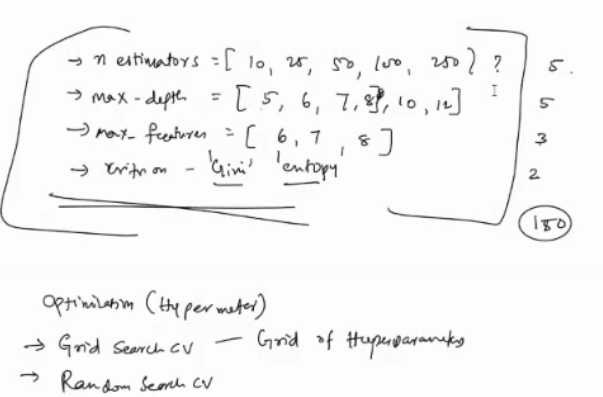 → n estimators = [ 10, 25, 50, 100, 250 ] ? 5.
→ max-depth = [ 5, 6, 7, 8, 10, 12 ] 5
→ max_features = [ 6, 7, 8 ] 3
→ criterion - 'Gini' 'entropy' 2
180
Optimization (Hypermeter)
→ Grid Search CV — Grid of Hyperparameters
→ Random Search CV